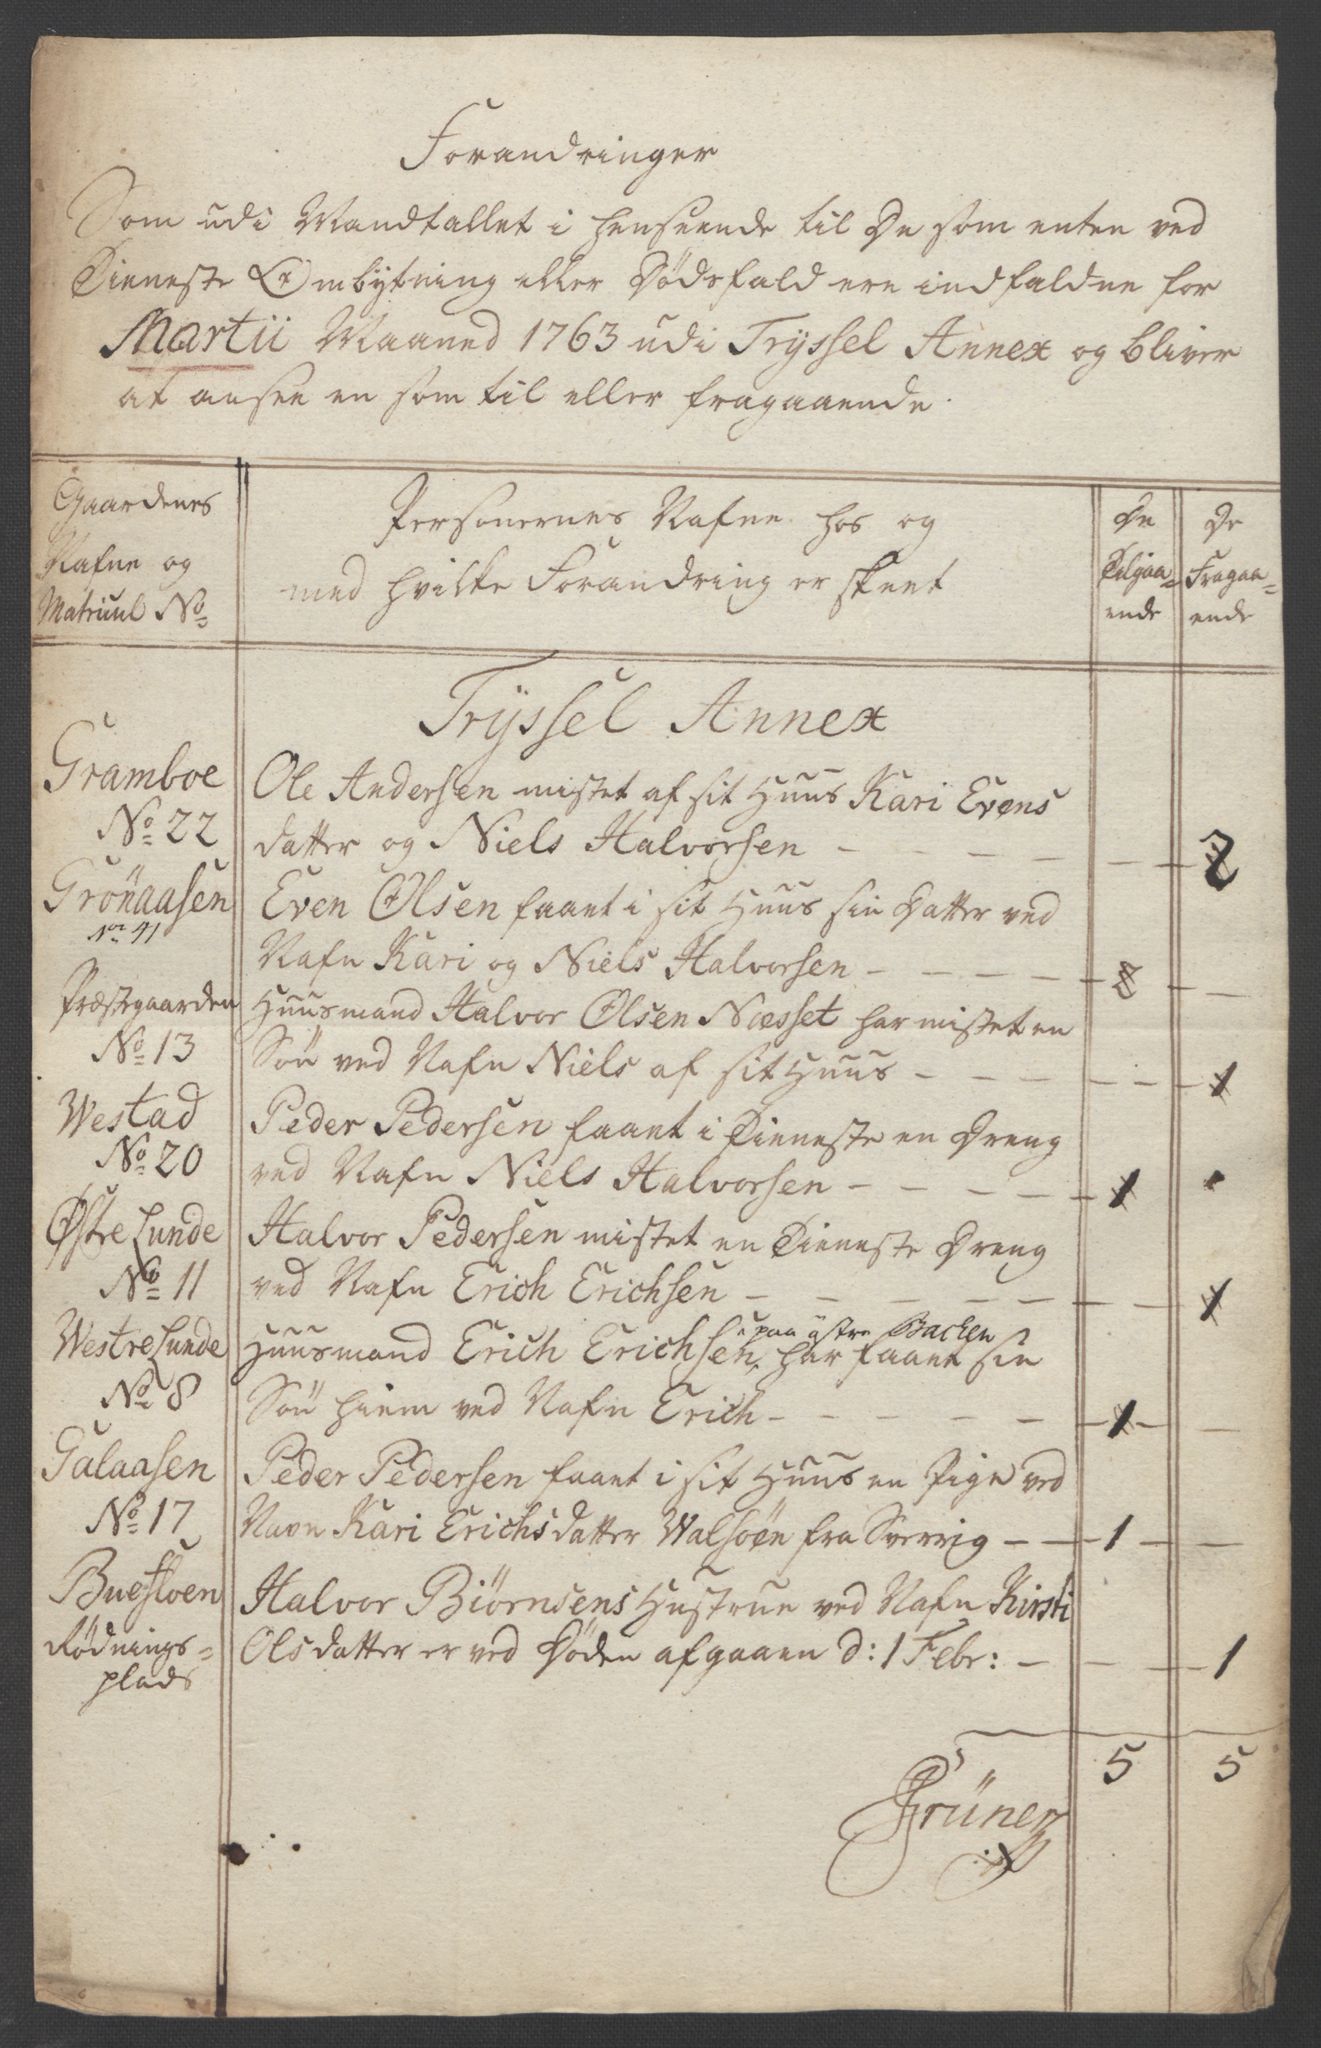 Forandringer
Som udi Mandtallet i henseende til De som enten ved
Tieneste Ombytning eller Dødsfald ere indfaldne for
Martii Maaned 1763 udi Trÿssel Annex og bliver
at ansee en som til eller fragaaende.
Gaardenes
Nafne og
Matriuul No:
Personernes Nafne hos og
med hvilke Forandring er skeet
De
Tilgaa=
ende
De
Fragaa=
ende
Trÿssel Annex
Gramboe
No: 22
Ole Andersen mistet af sit Huus Kari Evens
datter og Niels Halvorsen - - - - - - 2
Grönaasen
No: 41
Even Olsen faaet i sit Huus sin Datter ved
Nafn Kari og Niels Halvorsen - - - - 2 -
Præstegaarden
No: 13
Huusmand Halvor Olsen Næsset har mistet en
Sön ved Nafn Niels af sit Huus - - - - - 1
Westad
No: 20
Peder Pedersen faaet i Tieneste en Dreng
ved Nafn Niels Halvorsen - - - - - 1
Østre Lunde
No: 11
Halvor Pedersen mistet en Tieneste Dreng
ved Nafn Erich Erichsen - - - - - - 1
Westre Lunde
No: 8
paa östre Backen
Huusmand Erich Erichsen, har faaet sin
Sön hiem ved Nafn Erich - - - - - 1 -
Galaasen
No: 17
Peder Pedersen faaet i sit Huus en Pige ved
Navn Kari Erichsdatter Walsöen fra Sverrig - - 1 - -
Buefloen
Rödnings=
plads
Halvor Biörnsens Hustrue ved Nafn Kirsti
Olsdatter er ved Døden afgaaen d: 1 Febr: - - - 1
5 5
Grüner